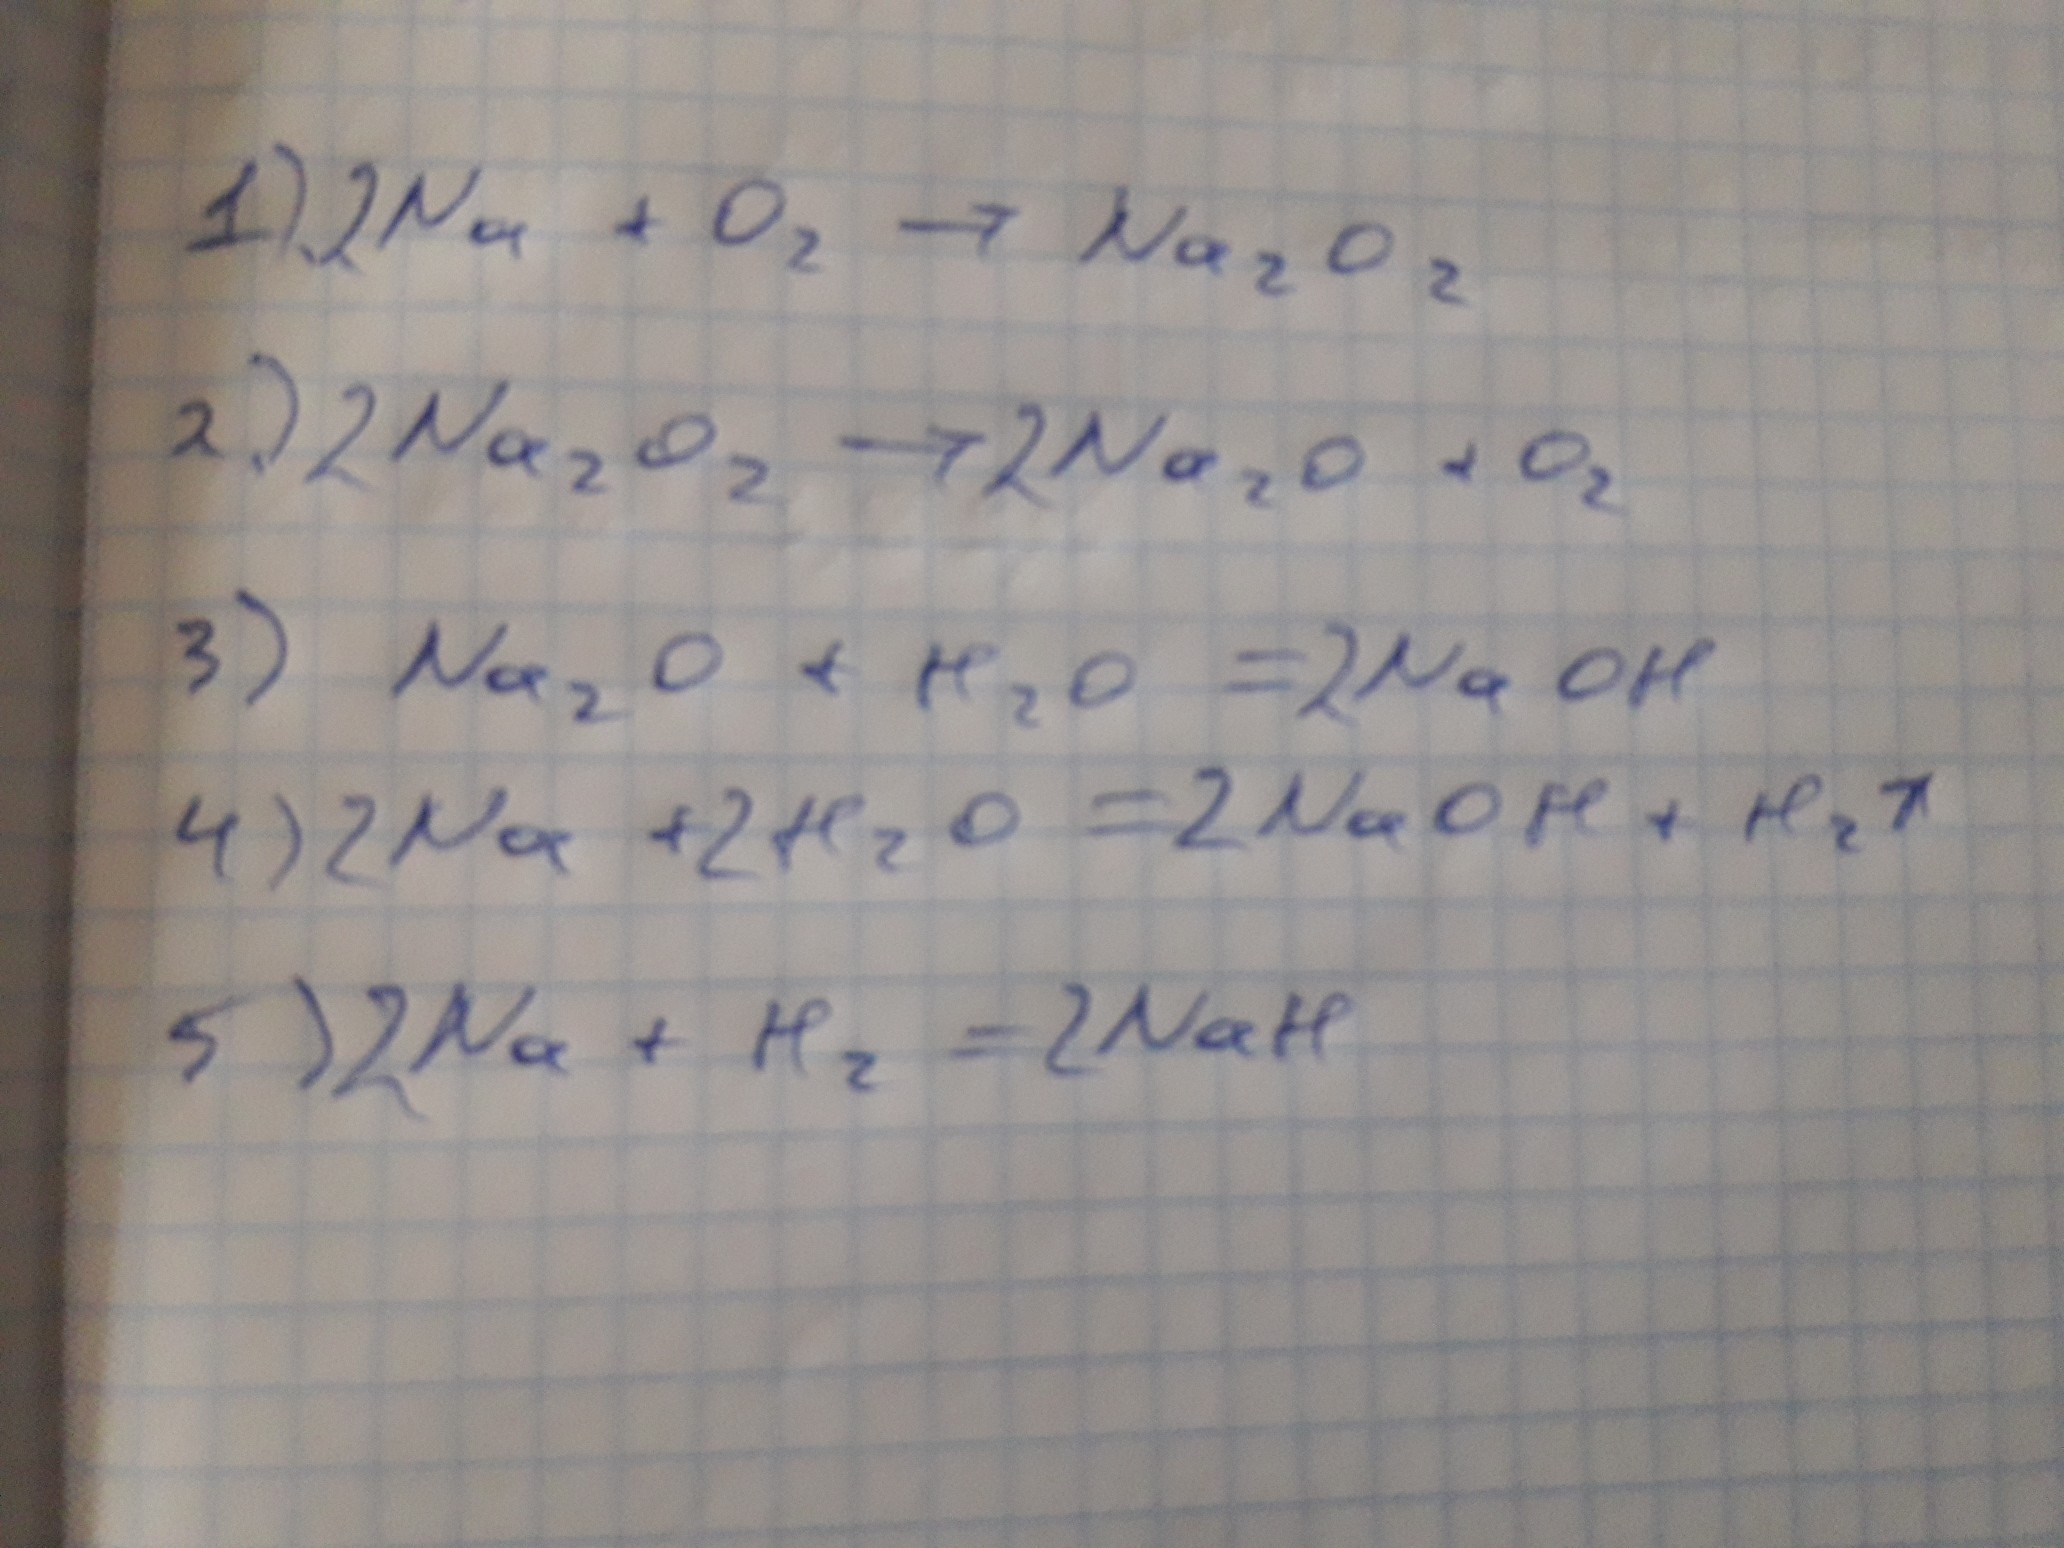 1) 2Na + O₂ → Na₂O₂
2) 2Na₂O₂ → 2Na₂O + O₂
3) Na₂O + H₂O = 2NaOH
4) 2Na + 2H₂O = 2NaOH + H₂↑
5) 2Na + H₂ = 2NaH